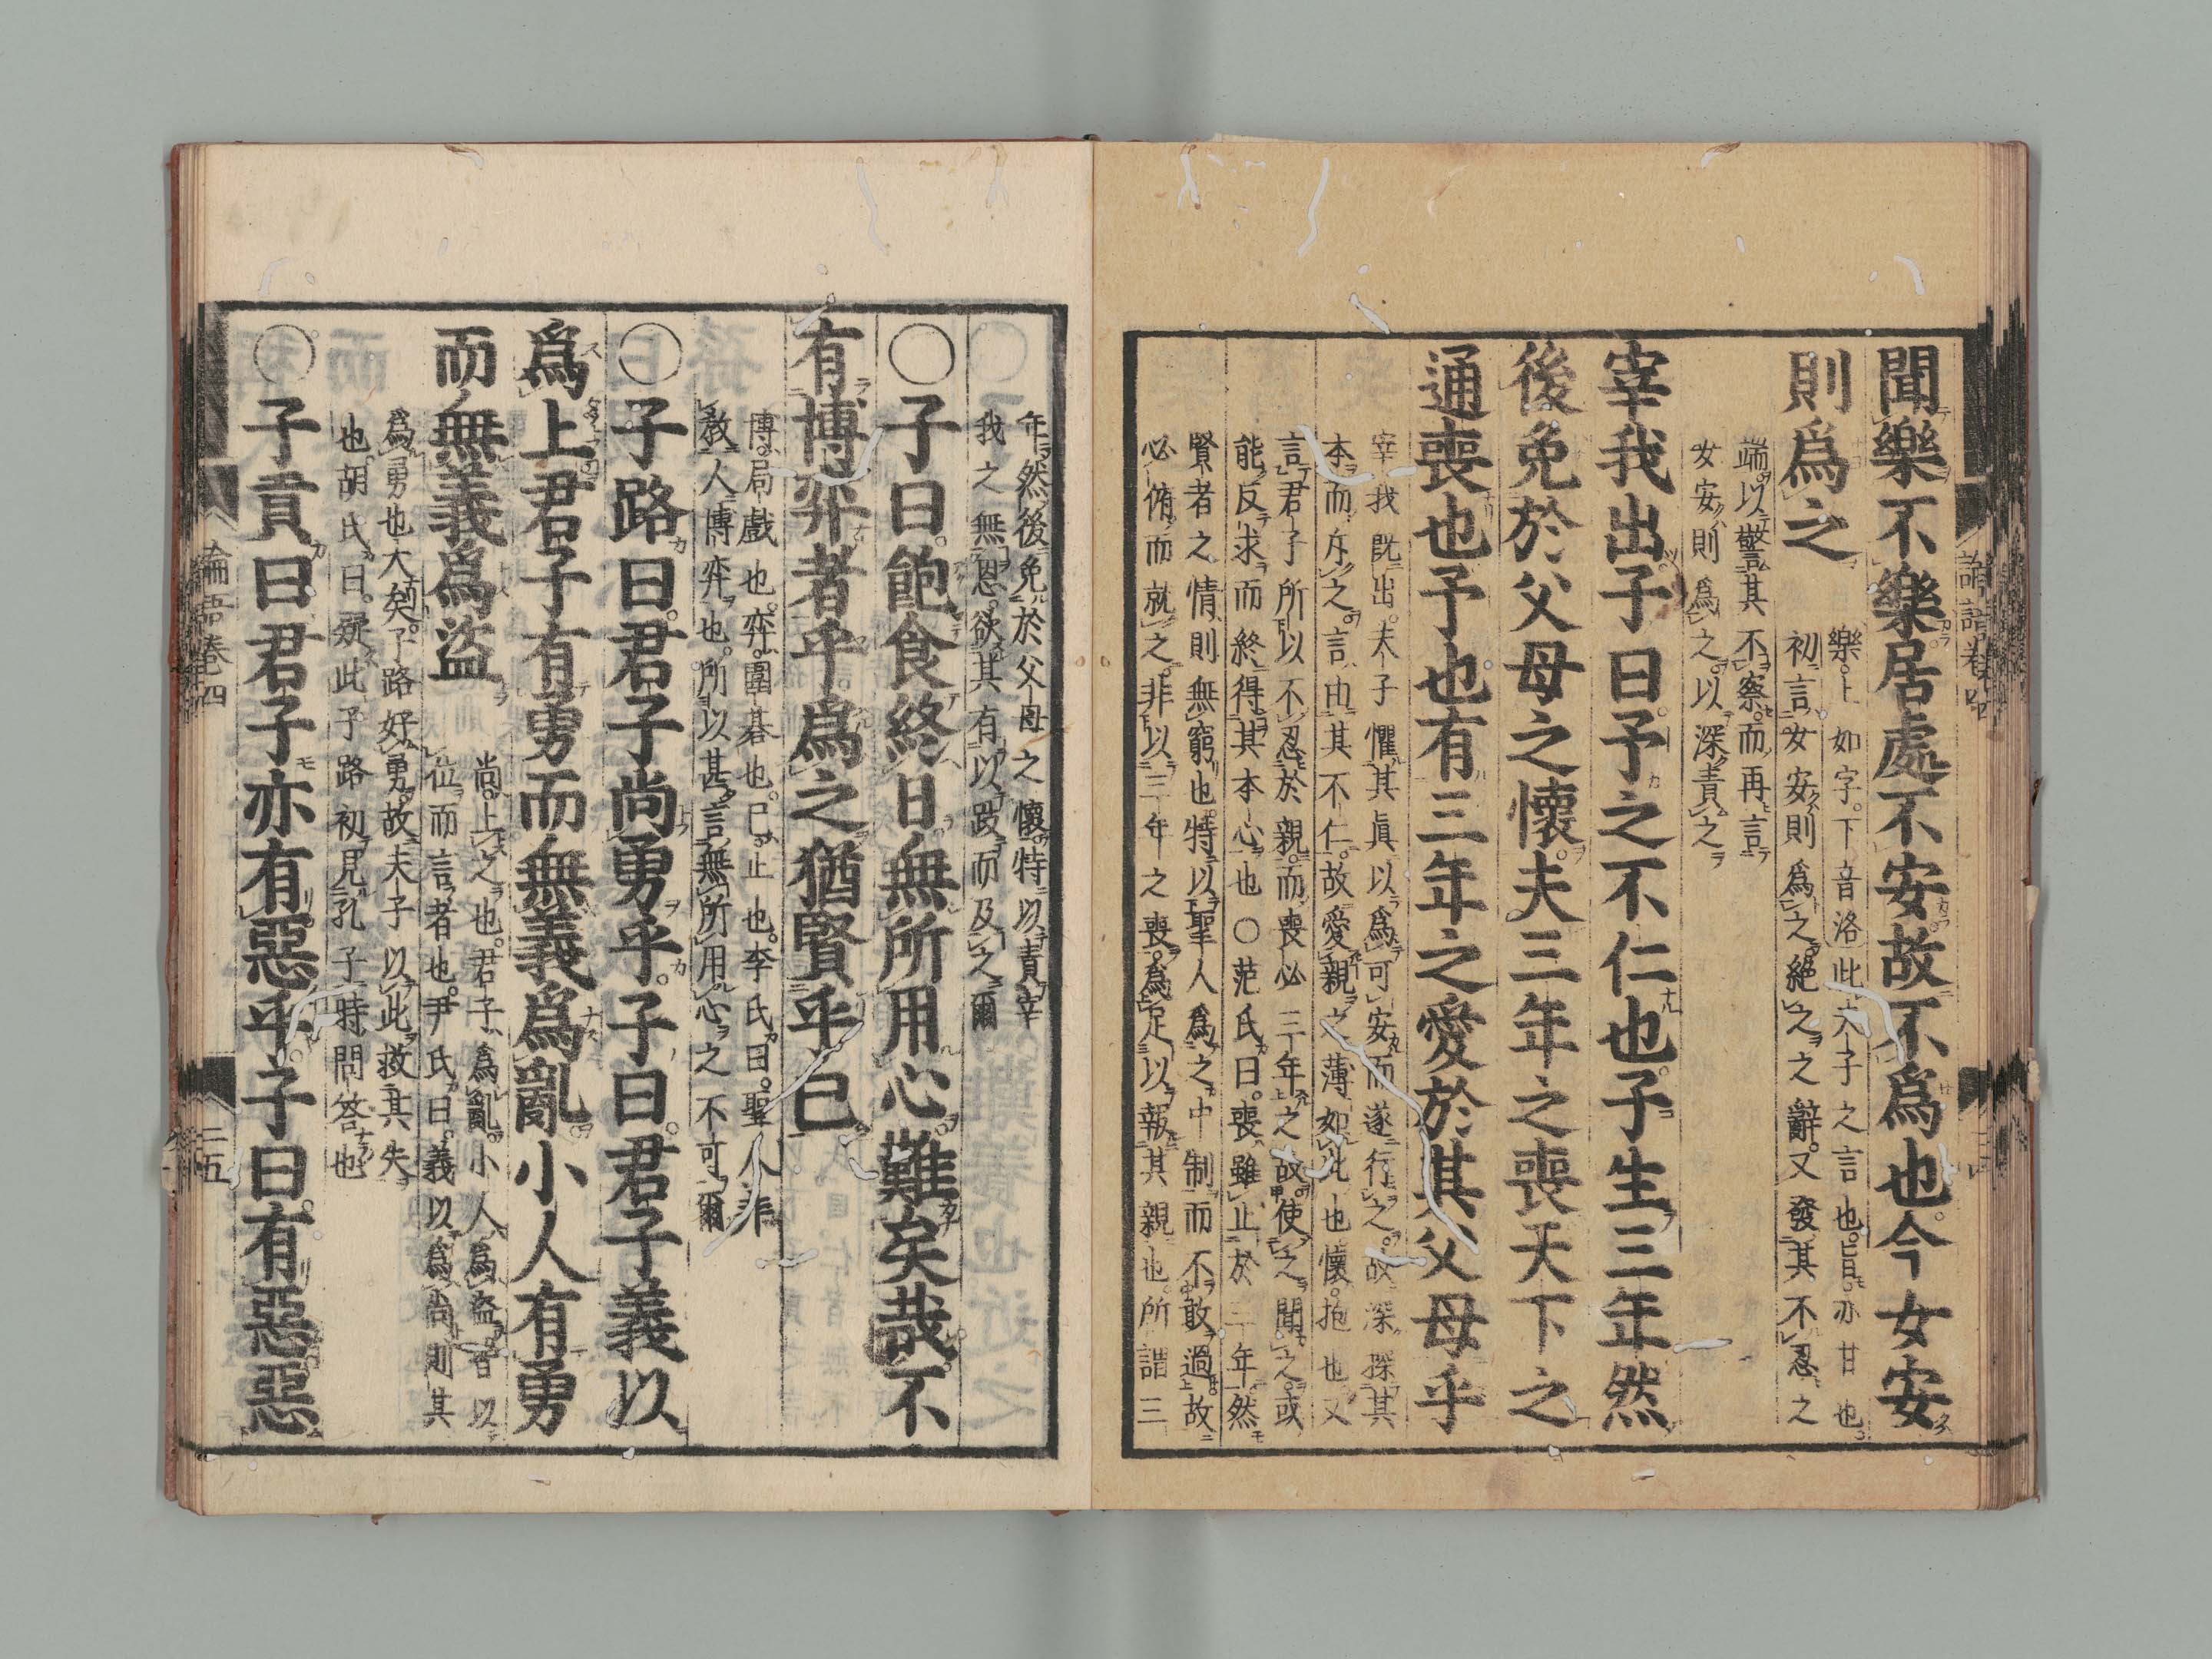 聞樂不樂居處不安故不爲也今女安
則爲之
樂上如字下音洛此夫子之言也旨亦甘也
初言女安則爲之絶之之辭又發其不忍之
端以警其不察而再言
女安則爲之以深責之
宰我出子曰予之不仁也子生三年然
後免於父母之懷夫三年之喪天下之
通喪也予也有三年之愛於其父母乎
宰我既出夫子懼其眞以爲可安而遂行之故深探其
本而斥之言由其不仁故愛親之薄如此也懷抱也又
言君子所以不忍於親而喪必三年之故使之聞之或
能反求而終得其本心也○范氏曰喪雖止於三年然
賢者之情則無窮也特以聖人爲之中制而不敢過故
必俯而就之非以三年之喪爲足以報其親也所謂三
論語卷四
年然後免於父母之懷特以責宰
我之無恩欲其有以跂而及之爾
○子曰飽食終日無所用心難矣哉不
有博弈者乎爲之猶賢乎已
博局戲也弈圍棊也已止也李氏曰聖人非
教人博弈也所以甚言無所用心之不可爾
○子路曰君子尚勇乎子曰君子義以
爲上君子有勇而無義爲亂小人有勇
而無義爲盜
尚上之也君子爲亂小人爲盜皆以
位而言者也尹氏曰義以爲尚則其
爲勇也大矣子路好勇故夫子以此救其失
也胡氏曰疑此子路初見孔子時問答也
○子貢曰君子亦有惡乎子曰有惡惡
論語卷四
二五